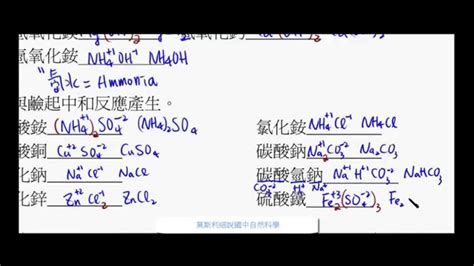 氫氧化銨 NH₄⁺¹OH⁻¹ NH₄OH
"氨水 = Ammonia
與鹼起中和反應產生。
酸銨 (NH₄)⁺¹₂SO₄⁻² (NH₄)₂SO₄
氯化銨 NH₄⁺¹Cl⁻¹ NH₄Cl
酸銅 Cu⁺²SO₄⁻² CuSO₄
碳酸鈉 Na₂⁺¹CO₃⁻² Na₂CO₃
化鈉 Na⁺¹Cl⁻¹ NaCl
碳酸氫鈉 Na⁺¹H⁺¹CO₃⁻² NaHCO₃
CO₃⁻² H⁺ Na⁺
化鋅 Zn⁺²Cl⁻¹₂ ZnCl₂
硫酸鐵 Fe₂⁺³(SO₄⁻²)₃ Fe₂
莫斯利細說國中自然科學